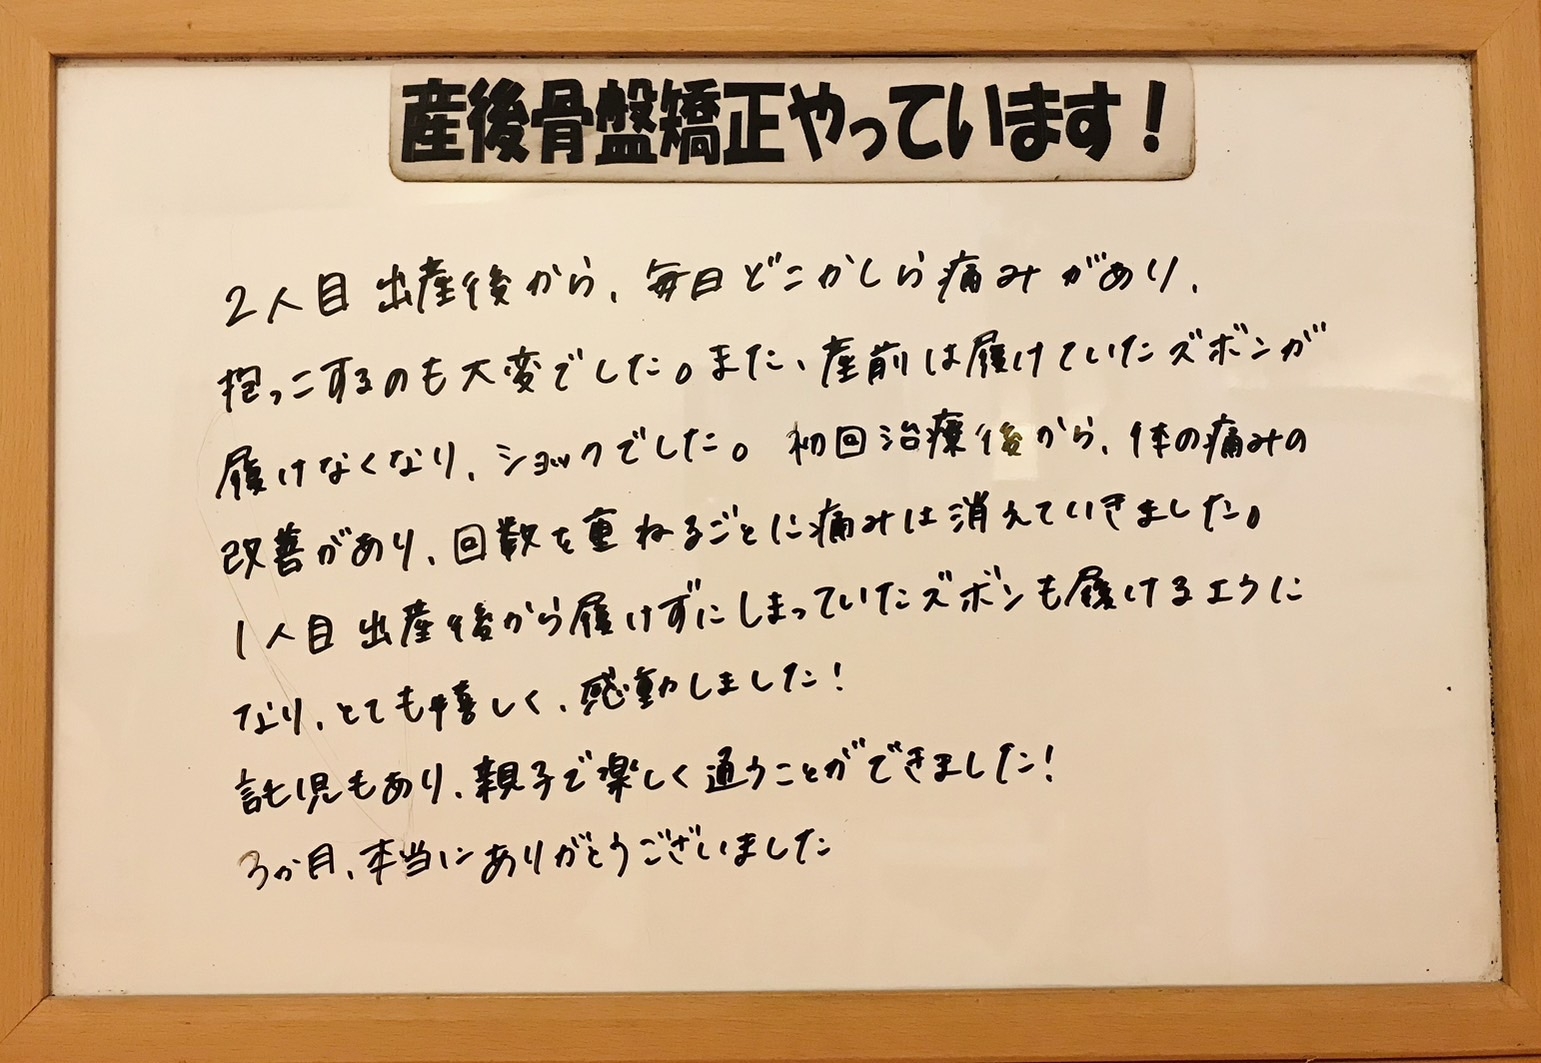 産後骨盤矯正やっています！
2人目出産後から、毎日どこかしら痛みがあり、
抱っこするのも大変でした。また、産前は履けていたズボンが
履けなくなり、ショックでした。初回治療後から、体の痛みの
改善があり、回数を重ねるごとに痛みは消えていきました。
1人目出産後から履けずにしまっていたズボンも履けるように
なり、とても嬉しく、感動しました！
託児もあり、親子で楽しく通うことができました！
3か月、本当にありがとうございました